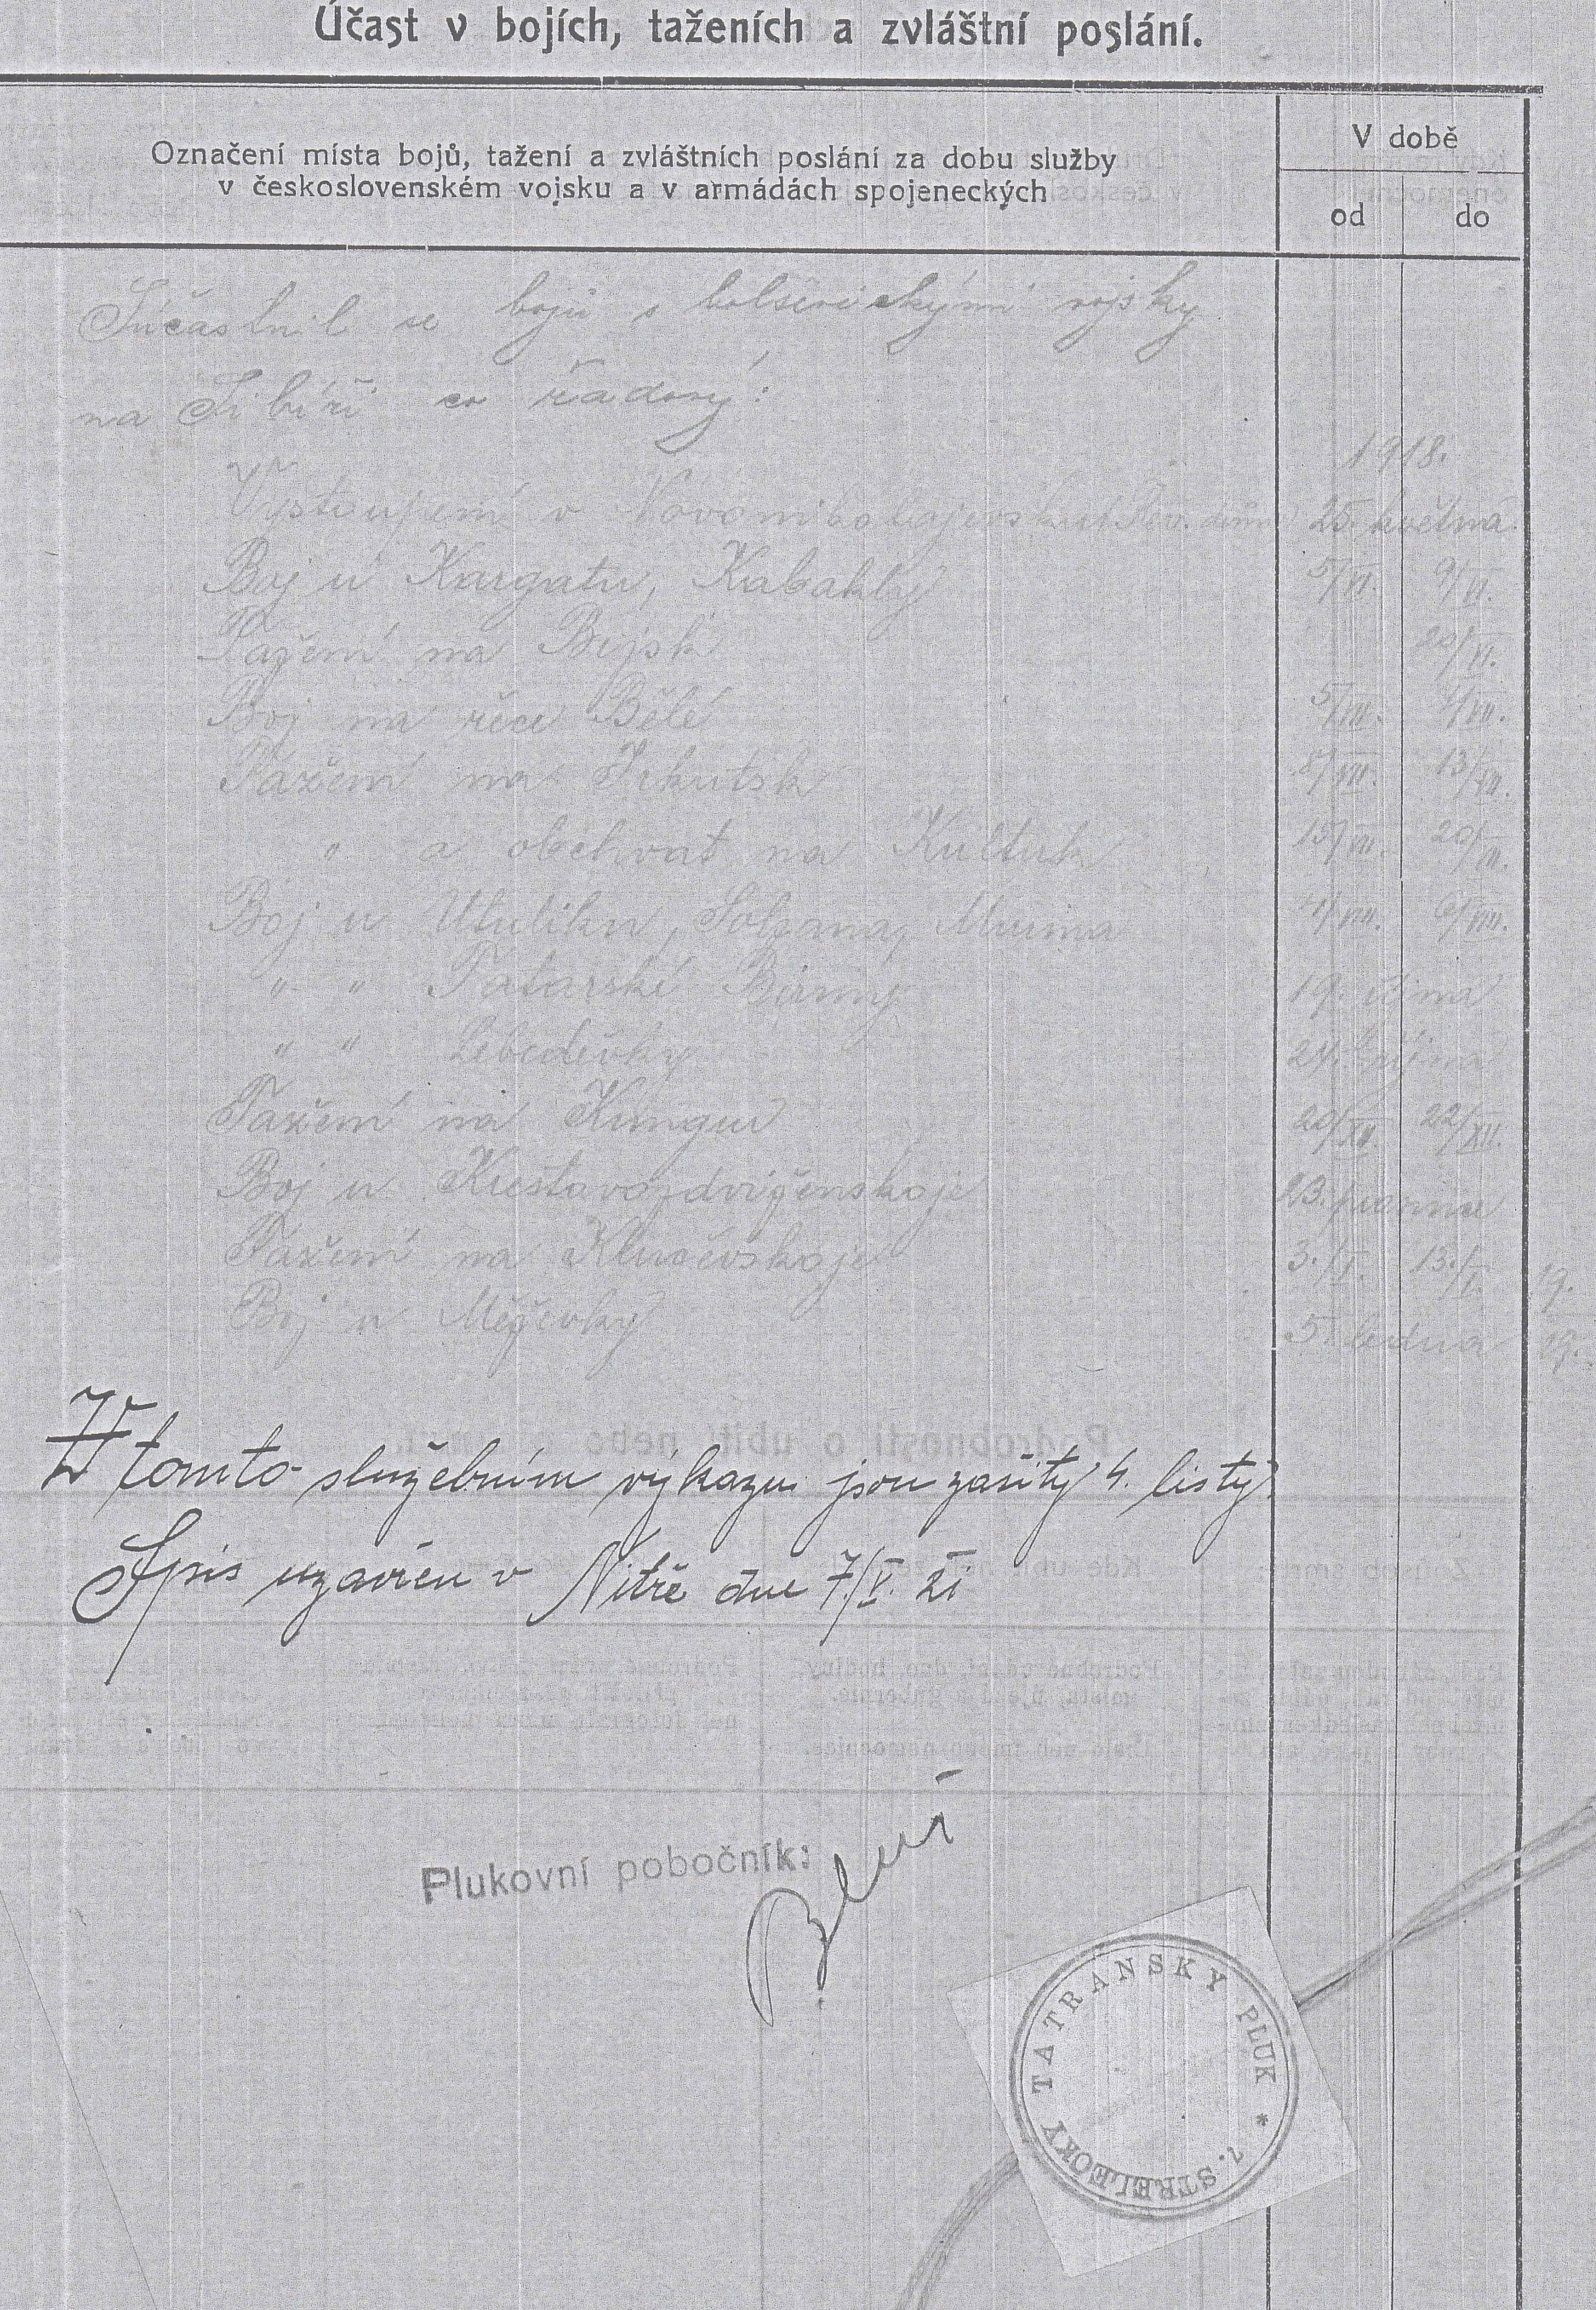 Účast v bojích, taženích a zvláštní poslání.
Označení místa bojů, tažení a zvláštních poslání za dobu služby
v československém vojsku a v armádách spojeneckých
V době
od do
Súčastnil se bojů s bolševickými vojsky
na Sibíři co řadový:
1918.
Vystoupení v Novonikolajevsku 25. května
Boj u Kargatu, Kabakly 5/VI. 9/VI.
Tažení na Bijsk 20/VI.
Boj na řece Bělé 5/VII. 7/VII.
Tažení na Irkutsk 8/VII. 13/VII.
" a obchvat na Kultuk 15/VII. 20/VII.
Boj u Utuliku, Solzana, Murina 4/VIII. 6/VIII.
" " Tatarské Birmy 19. října
" " Lebeděvky 24. října
Tažení na Kungur 20/XII. 22/XII.
Boj u Krestovozdviženskoje 23. prosince
Tažení na Ključevskoje 3./I. 13./I. 19.
Boj u Měčevky 5. ledna 19.
V tomto služebním výkazu jsou zašity 4. listy.
Spis uzavřen v Nitře dne 7/V. 21
Plukovní pobočník:
TATRANSKY PLUK * 7. STRELECKY